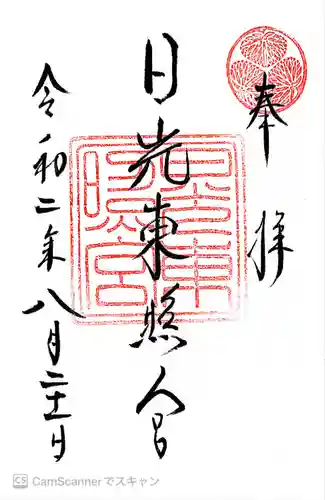 奉拝
日光東照宮
令和二年八月二十一日
CS CamScannerでスキャン